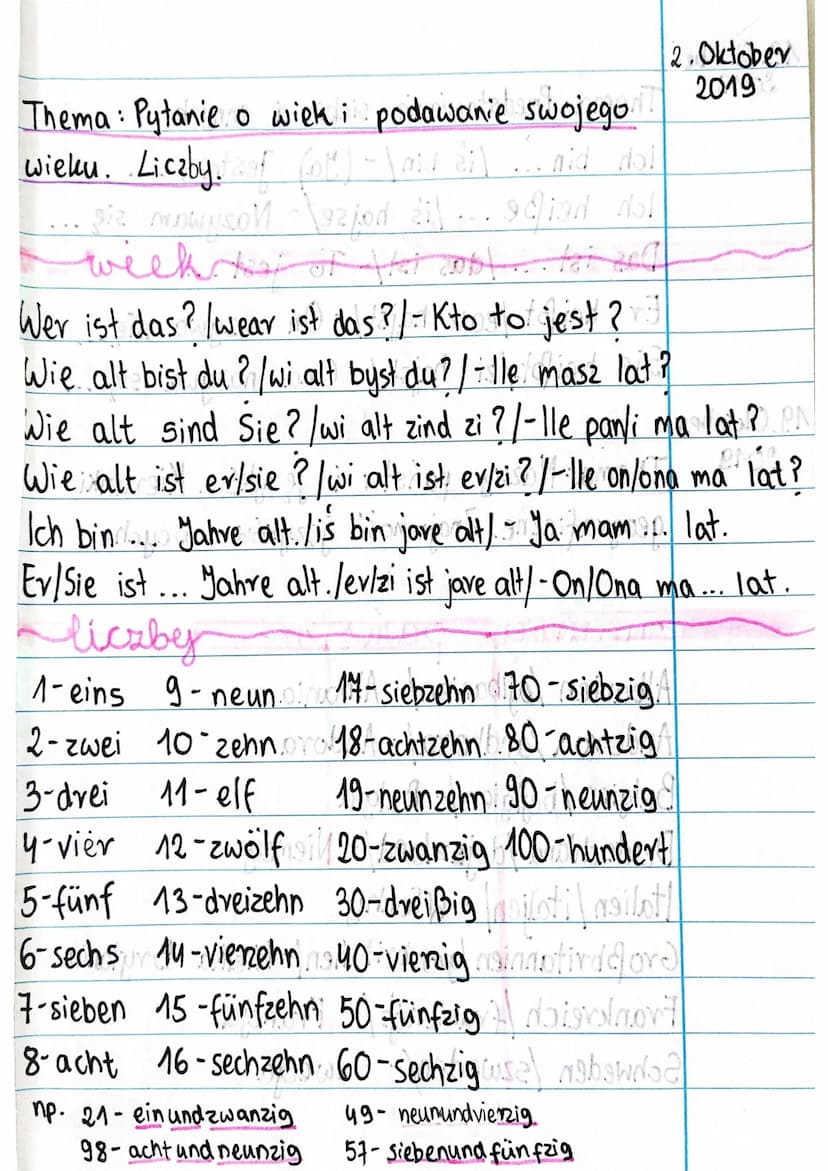 2. Oktober
2019
Thema: Pytanie o wiek i podawanie swojego
wieku. Liczby.
wiek
Wer ist das? /wear ist das?/ - Kto to jest?
Wie alt bist du? /wi alt byst du?/ - Ile masz lat?
Wie alt sind Sie? /wi alt zind zi?/ - Ile pan/i ma lat?
Wie alt ist er/sie? /wi alt ist er/zi?/ - Ile on/ona ma lat?
Ich bin ... Jahre alt. /iś bin jare alt/ - Ja mam ... lat.
Er/Sie ist ... Jahre alt. /er/zi ist jare alt/ - On/Ona ma ... lat.
liczby
1 - eins 9 - neun 17 - siebzehn 70 - siebzig
2 - zwei 10 - zehn 18 - achtzehn 80 - achtzig
3 - drei 11 - elf 19 - neunzehn 90 - neunzig
4 - vier 12 - zwölf 20 - zwanzig 100 - hundert
5 - fünf 13 - dreizehn 30 - dreißig
6 - sechs 14 - vierzehn 40 - vierzig
7 - sieben 15 - fünfzehn 50 - fünfzig
8 - acht 16 - sechzehn 60 - sechzig
np. 21 - einundzwanzig 49 - neunundvierzig
98 - achtundneunzig 57 - siebenundfünfzig